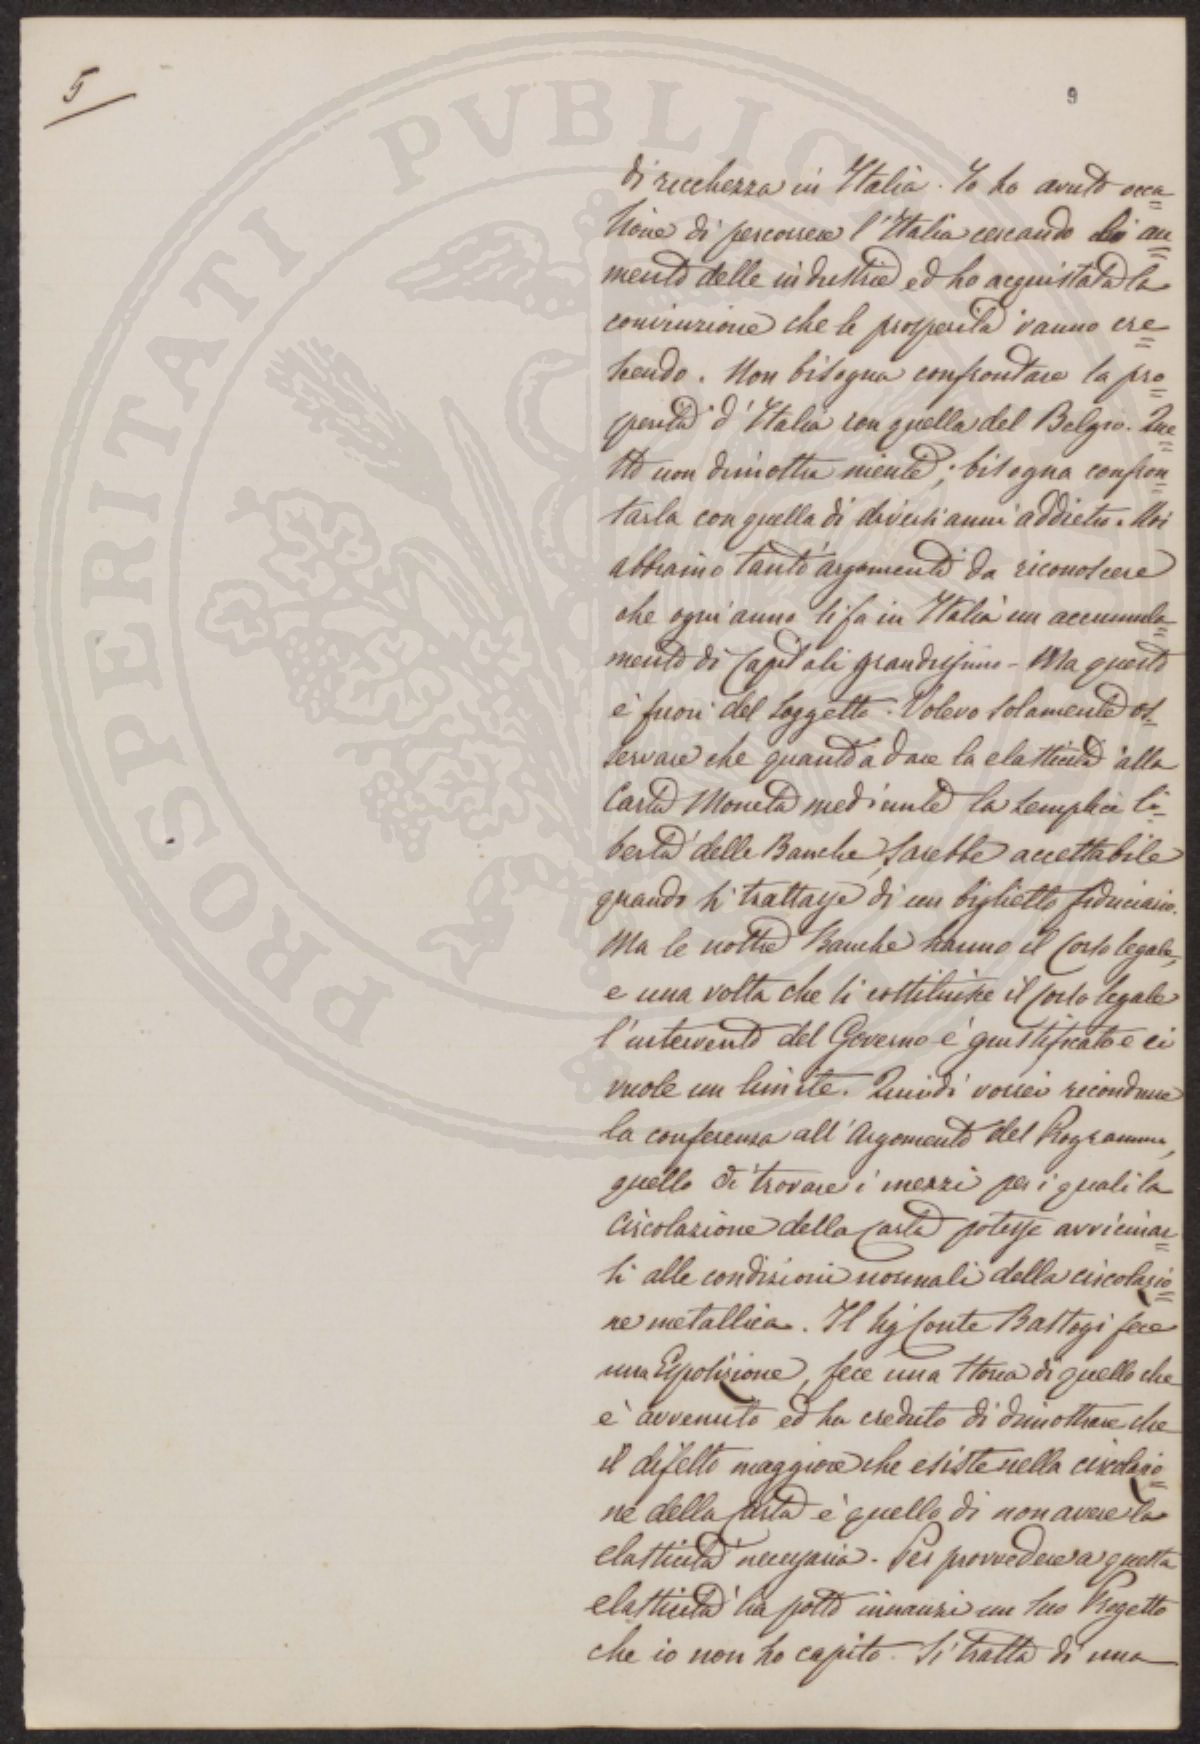 5
9
di ricchezza in Italia. Io ho avuto occa=
sione di percorrere l'Italia cercando an=
mento delle industrie ed ho acquistata la
convinzione che le prosperità vanno cre=
scendo. Non bisogna confrontare la pro=
sperità d'Italia con quella del Belgio. Que=
sto non dimostra niente; bisogna confron=
tarla con quella di diversi anni addietro. Noi
abbiamo tanti argomenti da riconoscere
che ogni anno si fa in Italia un accumula=
mento di Capitali grandissimo - Ma questo
è fuori del soggetto. Volevo solamente os=
servare che quanto a dare la elasticità alla
Carta Moneta mediante la semplice li=
bertà delle Banche, sarebbe accettabile
quando si trattasse di un biglietto fiduciario.
Ma le nostre Banche hanno il Corso legale,
e una volta che si costituisce il Corso legale
l'intervento del Governo è giustificato e ci
vuole un limite. Quindi vorrei ricondurre
la conferenza all'Argomento del Programma,
quello di trovare i mezzi per i quali la
Circolazione della Carta potesse avvicinar=
si alle condizioni normali della circolazio=
ne metallica. Il Sig Conte Bastogi fece
una Esposizione, fece una storia di quello che
è avvenuto ed ha creduto di dimostrare che
il difetto maggiore che esiste nella circolazio=
ne della Carta è quello di non avere la
elasticità necessaria. Per provvedere a questa
elasticità ha posto innanzi un suo Progetto
che io non ho capito. Si tratta di una
PROSPERITATI PVBLICAE